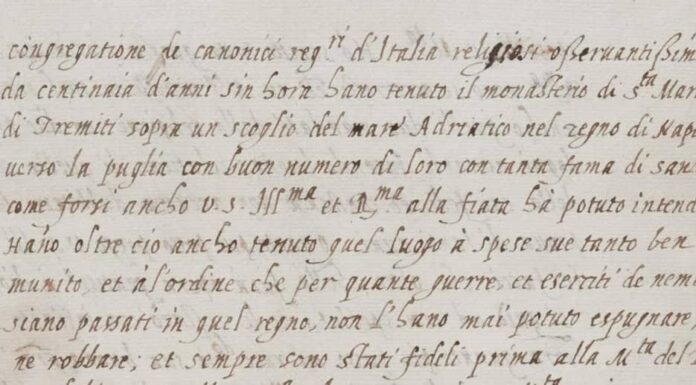 congregatione de canonici reg.ri d'Italia religiosi oßervantißim
da centinaia d'anni sin hora hano tenuto il monasterio di S.ta Mari
di Tremiti sopra un scoglio del mare Adriatico nel regno di Nap
verso la puglia con buon numero di loro con tanta fama di san
come forsi ancho V. S. Ill.ma et R.ma alla fiata hà potuto intend
Hano oltre ciò ancho tenuto quel luogo à spese sue tanto ben
munito, et al'ordine, che per quante guerre, et eserciti de nem
siano passati in quel regno, non l'hano mai potuto espugnare
ne robbare; et sempre sono stati fideli prima alla M.ta del